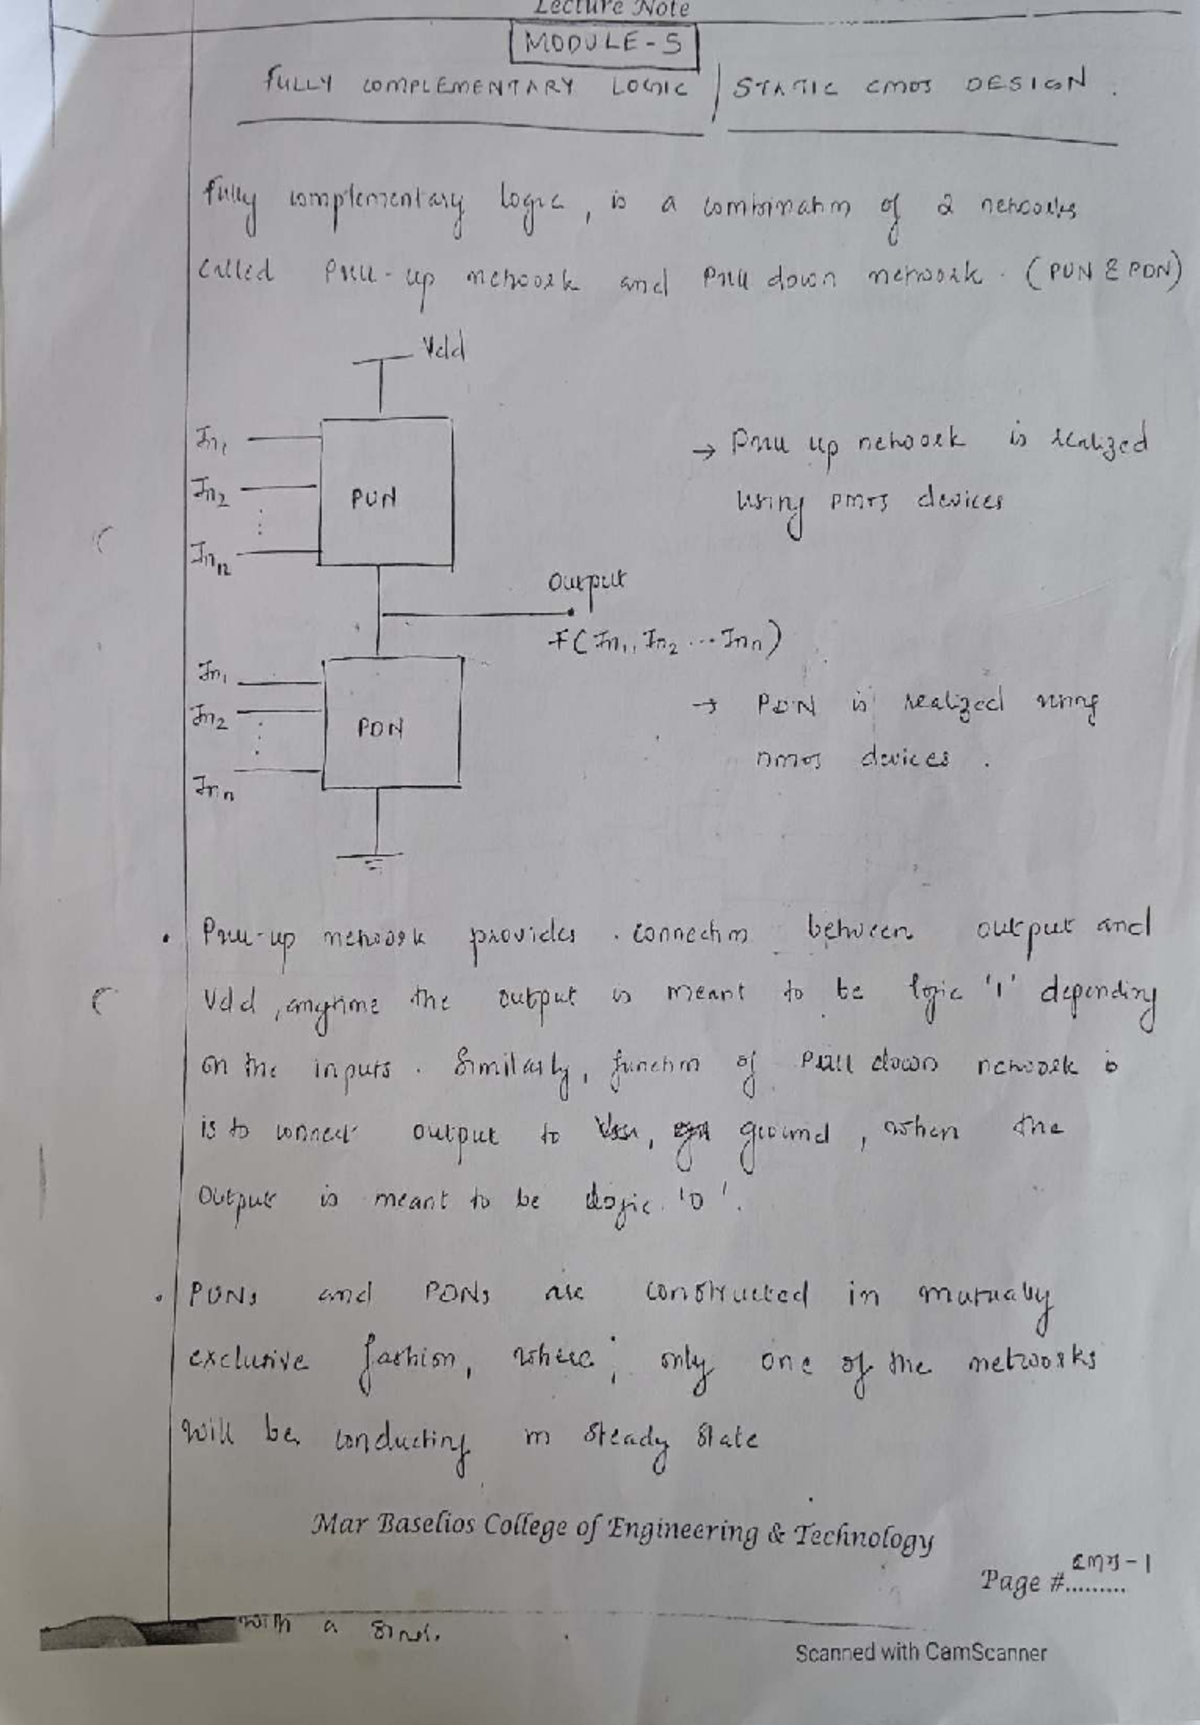 Lecture Note
MODULE-5
FULLY COMPLEMENTARY LOGIC / STATIC CMOS DESIGN.
Fully complementary logic, is a combination of 2 networks
called Pull-up network and Pull down network. (PUN & PDN)
Vdd
In1
In2
Inn
PUN
→ Pull up network is realized
using pmos devices
Output
F(In1, In2 ... Inn)
In1
In2
Inn
PDN
→ PDN is realized using
nmos devices.
• Pull-up network provides connection between output and
Vdd, anytime the output is meant to be logic '1' depending
on the inputs. Similarly, function of Pull down network
is to connect output to ground, when the
output is meant to be logic '0'.
• PUNs and PDNs are constructed in mutually
exclusive fashion, where; only one of the networks
will be conducting in steady state
Mar Baselios College of Engineering & Technology
Page #.........
with a
Scanned with CamScanner